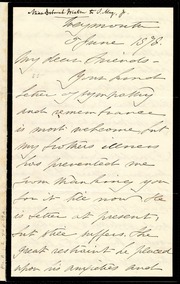 Miss Deborah Weston to S. May, Jr.
Weymouth
5 June 1878.
My dear Friends—
Your kind
letter of sympathy
and remembrance
is most welcome, but
my brothers illness
has prevented me
from thanking you
for it till now He
is better at present,
but still suffers. The
great restraint he placed
upon his anxieties and